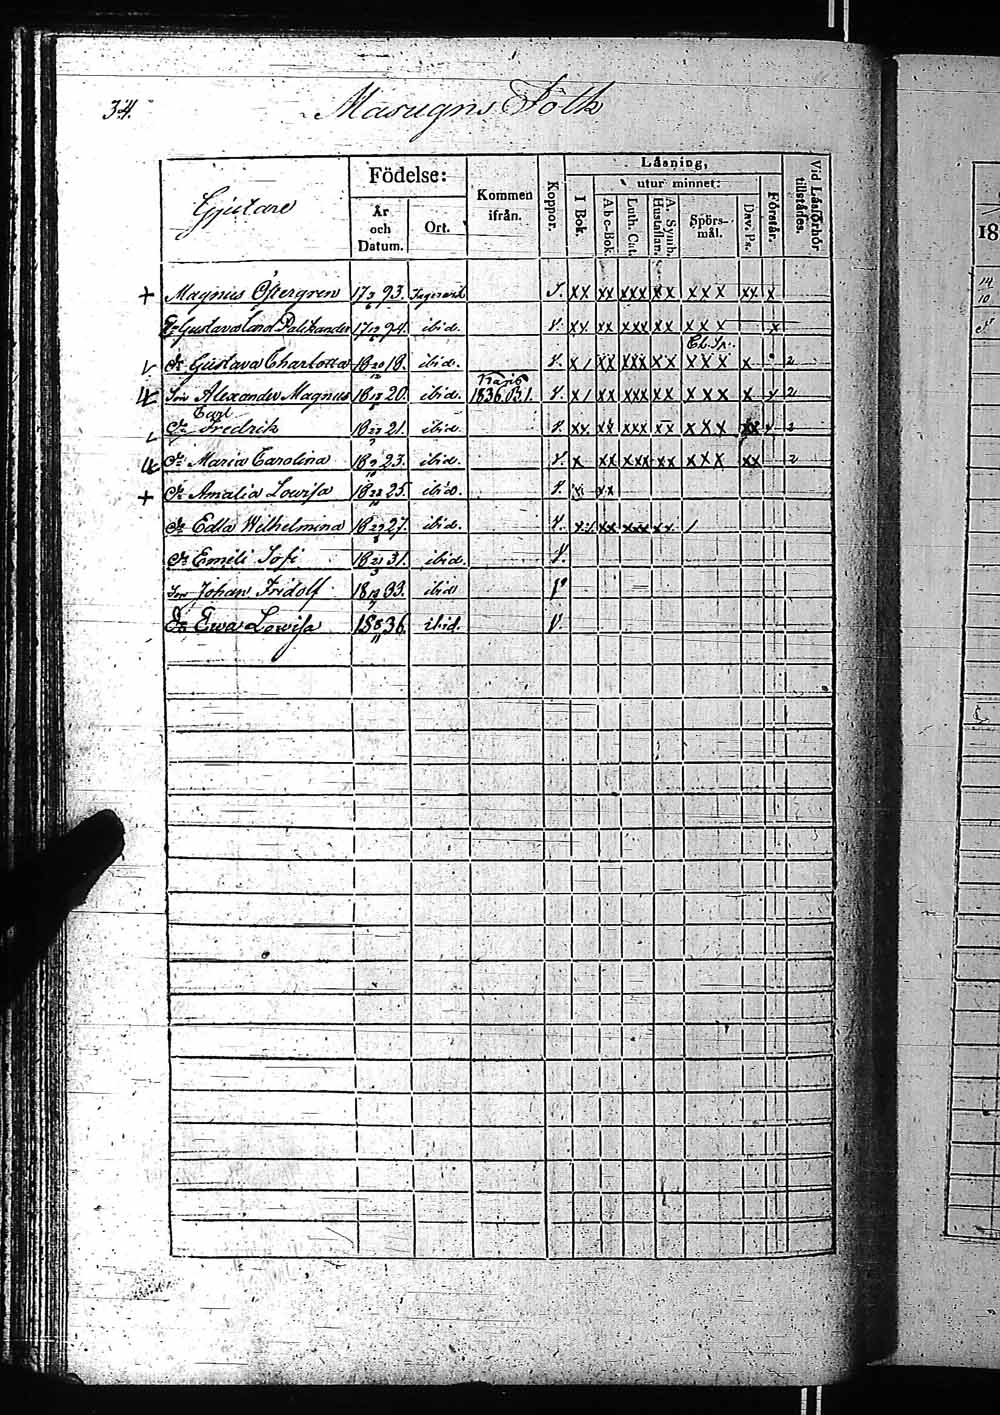 34.
Masugns Folk
Gjutare
Födelse:
År och Datum.
Ort.
Kommen ifrån.
Koppor.
Läsning,
I Bok.
utur minnet:
A b c-Bok.
Luth. Cat.
A. Symb. Hustaflan.
Spörs-mål.
Dav. Ps.
Förstår.
Vid Läsförhör tillstädes.
+ Magnus Östergren 17 93. S. xx xx xxx xx xxx xx x
Gustava 17 94. ibid. V. xx xx xxx xx xxx x
Gustava Charlotta 18 20/12 18. ibid. V. x / xx xxx xx xxx x 2
Son Alexander Magnus 18 20. ibid. 1836. V. x / xx xxx xx xxx x y 2
Carl
Fredrik 18 21. ibid. V. xx xx xxx xx xxx xx y 2
Dr Maria Carolina 18 23. ibid. V. x xx xxx xx xxx xx 2
+ Dr Amalia Lowisa 18 25. ibid. V. x xx
Dr Edla Wilhelmina 18 27. ibid. V. xx xxx xx /
Dr Emeli Sofi 18 21/3 31. ibid. V.
Son Johan Fridolf 18 33. ibid
Dr Ewa Lowisa 18 8/11 36. ibid. V.
18
14
10